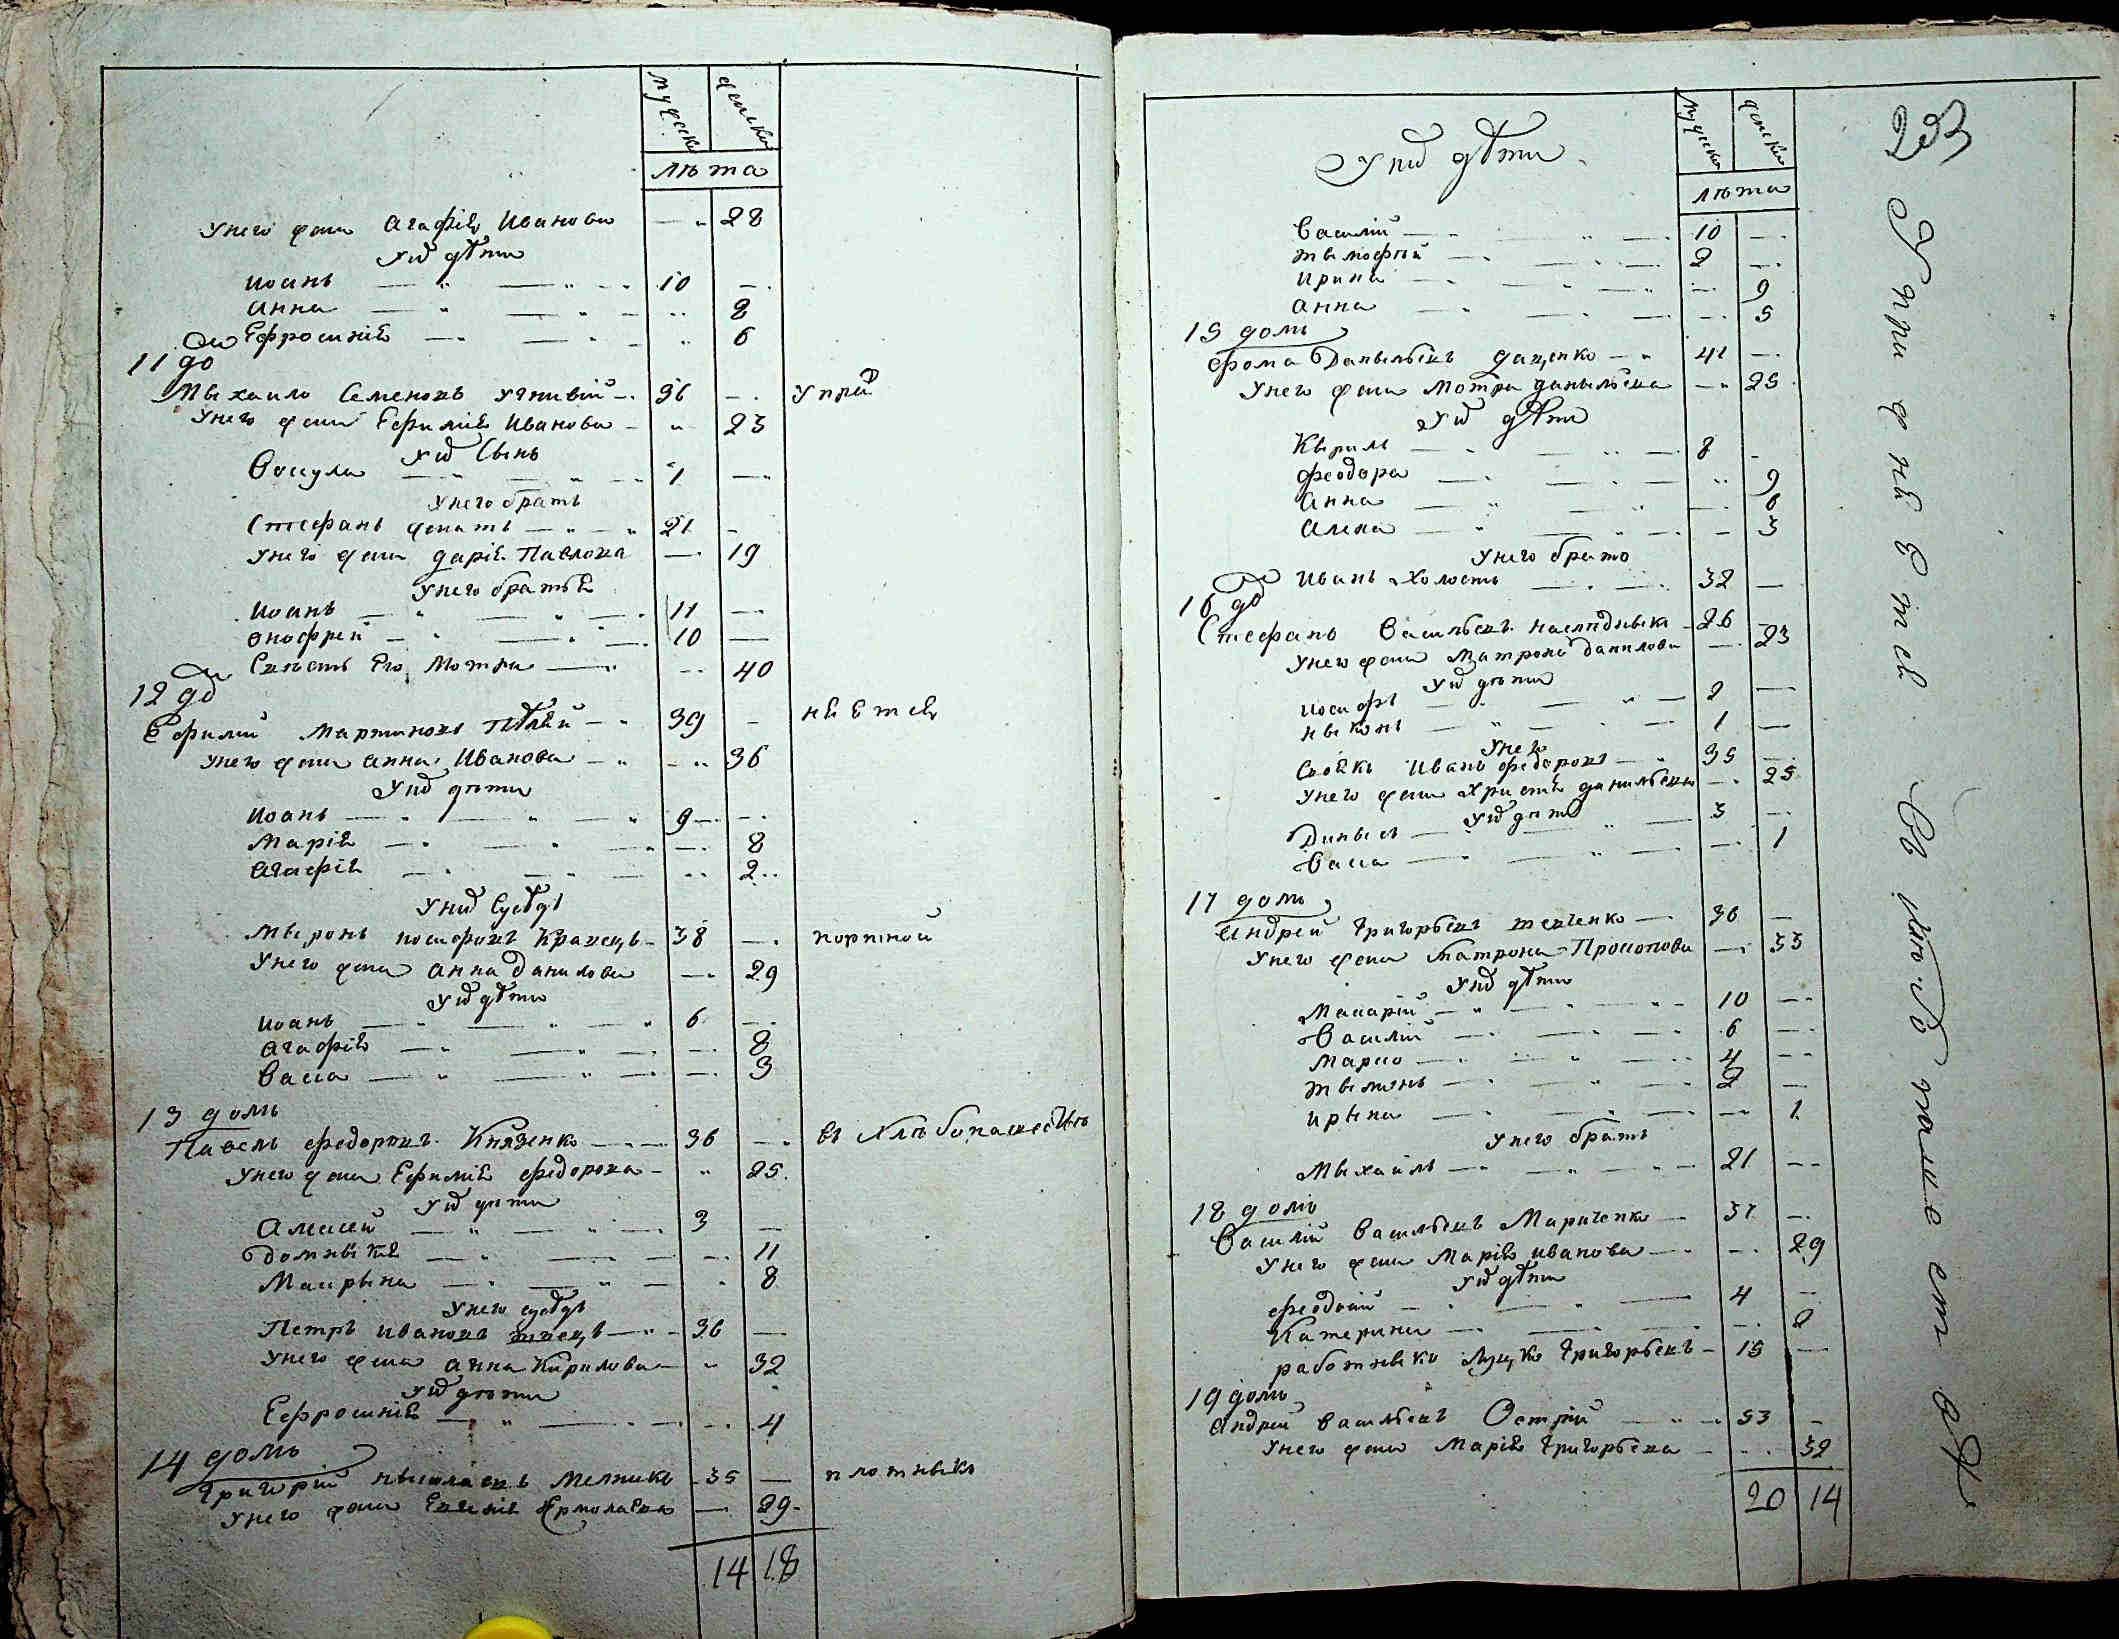 мужеска женска
лѣта
У него жена Агафiя Иванова 28
У них дѣти
Иоанъ 10
Анна 8
Ефросинiя 6
11 до
Мыхаило Семеновъ 36 Упраж
У него жена Ефимiя Иванова 23
У них Сынъ
Вакула 1
У него братъ
Стефанъ женатъ 21
У него жена Дарiя Павлова 19
У него братья
Иоанъ 11
Онофрей 10
Свѣсть Его Мотря 40
12 до
Ефимiй Мартиновъ 39 няется
У него жена Анна Иванова 36
У них дѣти
Иоанъ 9
Марiя 8
Агафiя 2
У них Сусѣды
Мыронъ Иосифовъ Кравецъ 38 портной
У него жена Анна Данилова 29
У них дѣти
Иоанъ 6
Агафiя 8
Васса 3
13 домъ
Павелъ Федоровъ Князенко 36 въ хлѣбопашествѣ
У него жена Ефимiя Федорова 25
У них дѣти
Алексей 3
Домникiя 11
Маврына 8
У него сусѣдъ
Петръ Ивановъ Швецъ 36
У него жена Анна Кирилова 32
У них дѣти
Ефросинiя 4
14 домъ
Григорiй Ныколаевъ Мелникъ 35 плотныкъ
У него жена Евгенiя Ермолаева 29
14 18
мужеска женска
233
У них дѣти
лѣта
Василiй 10
Тымофтiй 2
Ирина 9
Анна 5
15 домъ
Фома Данылѣевъ Даценко 41
У него жена Мотря Данылѣева 25
У них дѣти
Кырилъ 8
Феодора 9
Анна 6
Алена 3
У него братъ
Иванъ Холостъ 32
16 до
Стефанъ Васильевъ 26
У него жена Матрона Данилова 23
У них дѣти
Иосифъ 2
Ныконъ 1
У него
Своякъ Иванъ Федоровъ 35
У него жена Христя Данильева 25
У них дѣти
Динысъ 3
Васса 1
17 домъ
Андрей Григорьевъ Тевченко 36
У него жена Матрона Прокопова 33
У них дѣти
Макарiй 10
Василiй 6
Марко 4
Тымошъ 2
Ирына 1
У него братъ
Мыхаилъ 21
18 домъ
Василiй Васильевъ Марченко 37
У него жена Марiя Иванова 29
У них дѣти
Феодосiй 4
Катерина 2
работныкъ Луцко Григорьевъ 15
19 домъ
Андрей Васильевъ Острiй 53
У него жена Марiя Григорьева 32
20 14
Упражняется Въ хлѣбопашествѣ